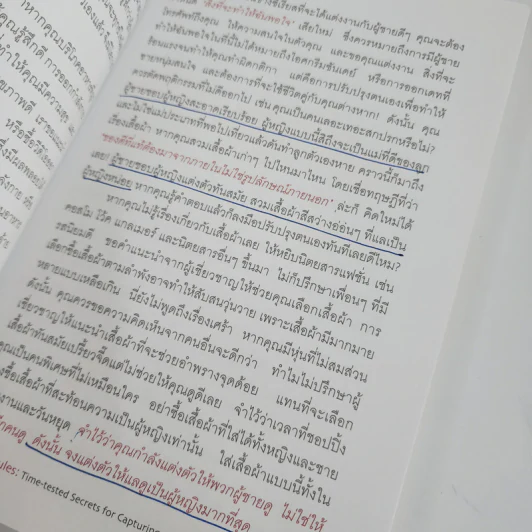 "สิ่งที่จะทำให้ฉันพอใจ" เสียใหม่ ซึ่งควรหมายถึงการมีผู้ชาย
โทรศัพท์ถึงคุณ ให้ความสนใจในตัวคุณ และขอคุณแต่งงาน สิ่งที่จะ
ทำให้คุณพอใจในที่นี้ไม่ได้หมายถึงไอศกรีมซันเดย์ หรือการออกเดทที่
ร้อนแรงจนทำให้คุณทำผิดกติกา แต่คือการปรับปรุงตนเองเพื่อทำให้
ชายหนุ่มสนใจ และต้องการที่จะใช้ชีวิตคู่กับคุณต่างหาก! ดังนั้น คุณ
ควรตัดพฤติกรรมที่ไม่ดีออกไป เช่น คุณเป็นคนเลอะเทอะสกปรกหรือไม่?
ผู้ชายชอบผู้หญิงสะอาดเรียบร้อย ผู้หญิงแบบนี้สิถึงจะเป็นแม่ที่ดีของลูก
และไม่ใช่แม่ประเภทที่พอไปเที่ยวแล้วดันทำลูกตัวเองหาย คราวนี้ก็มาถึง
เรื่องเสื้อผ้า หากคุณสวมเสื้อผ้าเก่าๆ ไปไหนมาไหน โดยเชื่อทฤษฎีที่ว่า
"ของดีที่แท้ต้องมาจากภายในไม่ใช่รูปลักษณ์ภายนอก" ล่ะก็ คิดใหม่ได้
เลย! ผู้ชายชอบผู้หญิงแต่งตัวทันสมัย สวมเสื้อผ้าสีสว่างอ่อนๆ ที่แลเป็น
ผู้หญิงหน่อย หากคุณรู้คำตอบแล้วก็ลงมือปรับปรุงตนเองทันทีเลยดีไหม?
หากคุณไม่รู้เรื่องเกี่ยวกับเสื้อผ้าเลย ให้หยิบนิตยสารแฟชั่น เช่น
คอสโม โว้ค แกลเมอร์ และนิตยสารอื่นๆ ขึ้นมา ไม่ก็ปรึกษาเพื่อนๆ ที่มี
รสนิยมดี ขอคำแนะนำจากผู้เชี่ยวชาญให้ช่วยคุณเลือกเสื้อผ้า การ
เลือกซื้อเสื้อผ้าตามลำพังอาจทำให้สับสนวุ่นวาย เพราะเสื้อผ้ามีมากมาย
หลายแบบเหลือเกิน นี่ยังไม่พูดถึงเรื่องเศร้า หากคุณมีหุ่นที่ไม่สมส่วน
ดังนั้น คุณควรขอความคิดเห็นจากคนอื่นจะดีกว่า ทำไมไม่ปรึกษาผู้
เชี่ยวชาญให้แนะนำเสื้อผ้าที่จะช่วยอำพรางจุดด้อย แทนที่จะเลือก
เสื้อผ้าทันสมัยเปรี้ยวจี๊ดแต่ไม่ช่วยให้คุณดูดีเลย จำไว้ว่าเวลาที่ชอปปิ้ง
คุณเป็นคนพิเศษที่ไม่เหมือนใคร อย่าซื้อเสื้อผ้าที่ใส่ได้ทั้งหญิงและชาย
ซื้อเสื้อผ้าที่สะท้อนความเป็นผู้หญิงเท่านั้น ใส่เสื้อผ้าแบบนี้ทั้งใน
งานและวันหยุด จำไว้ว่าคุณกำลังแต่งตัวให้พวกผู้ชายดู ไม่ใช่ให้
คนดู ดังนั้น จงแต่งตัวให้แลดูเป็นผู้หญิงมากที่สุด
ules: Time-tested Secrets for Capturing